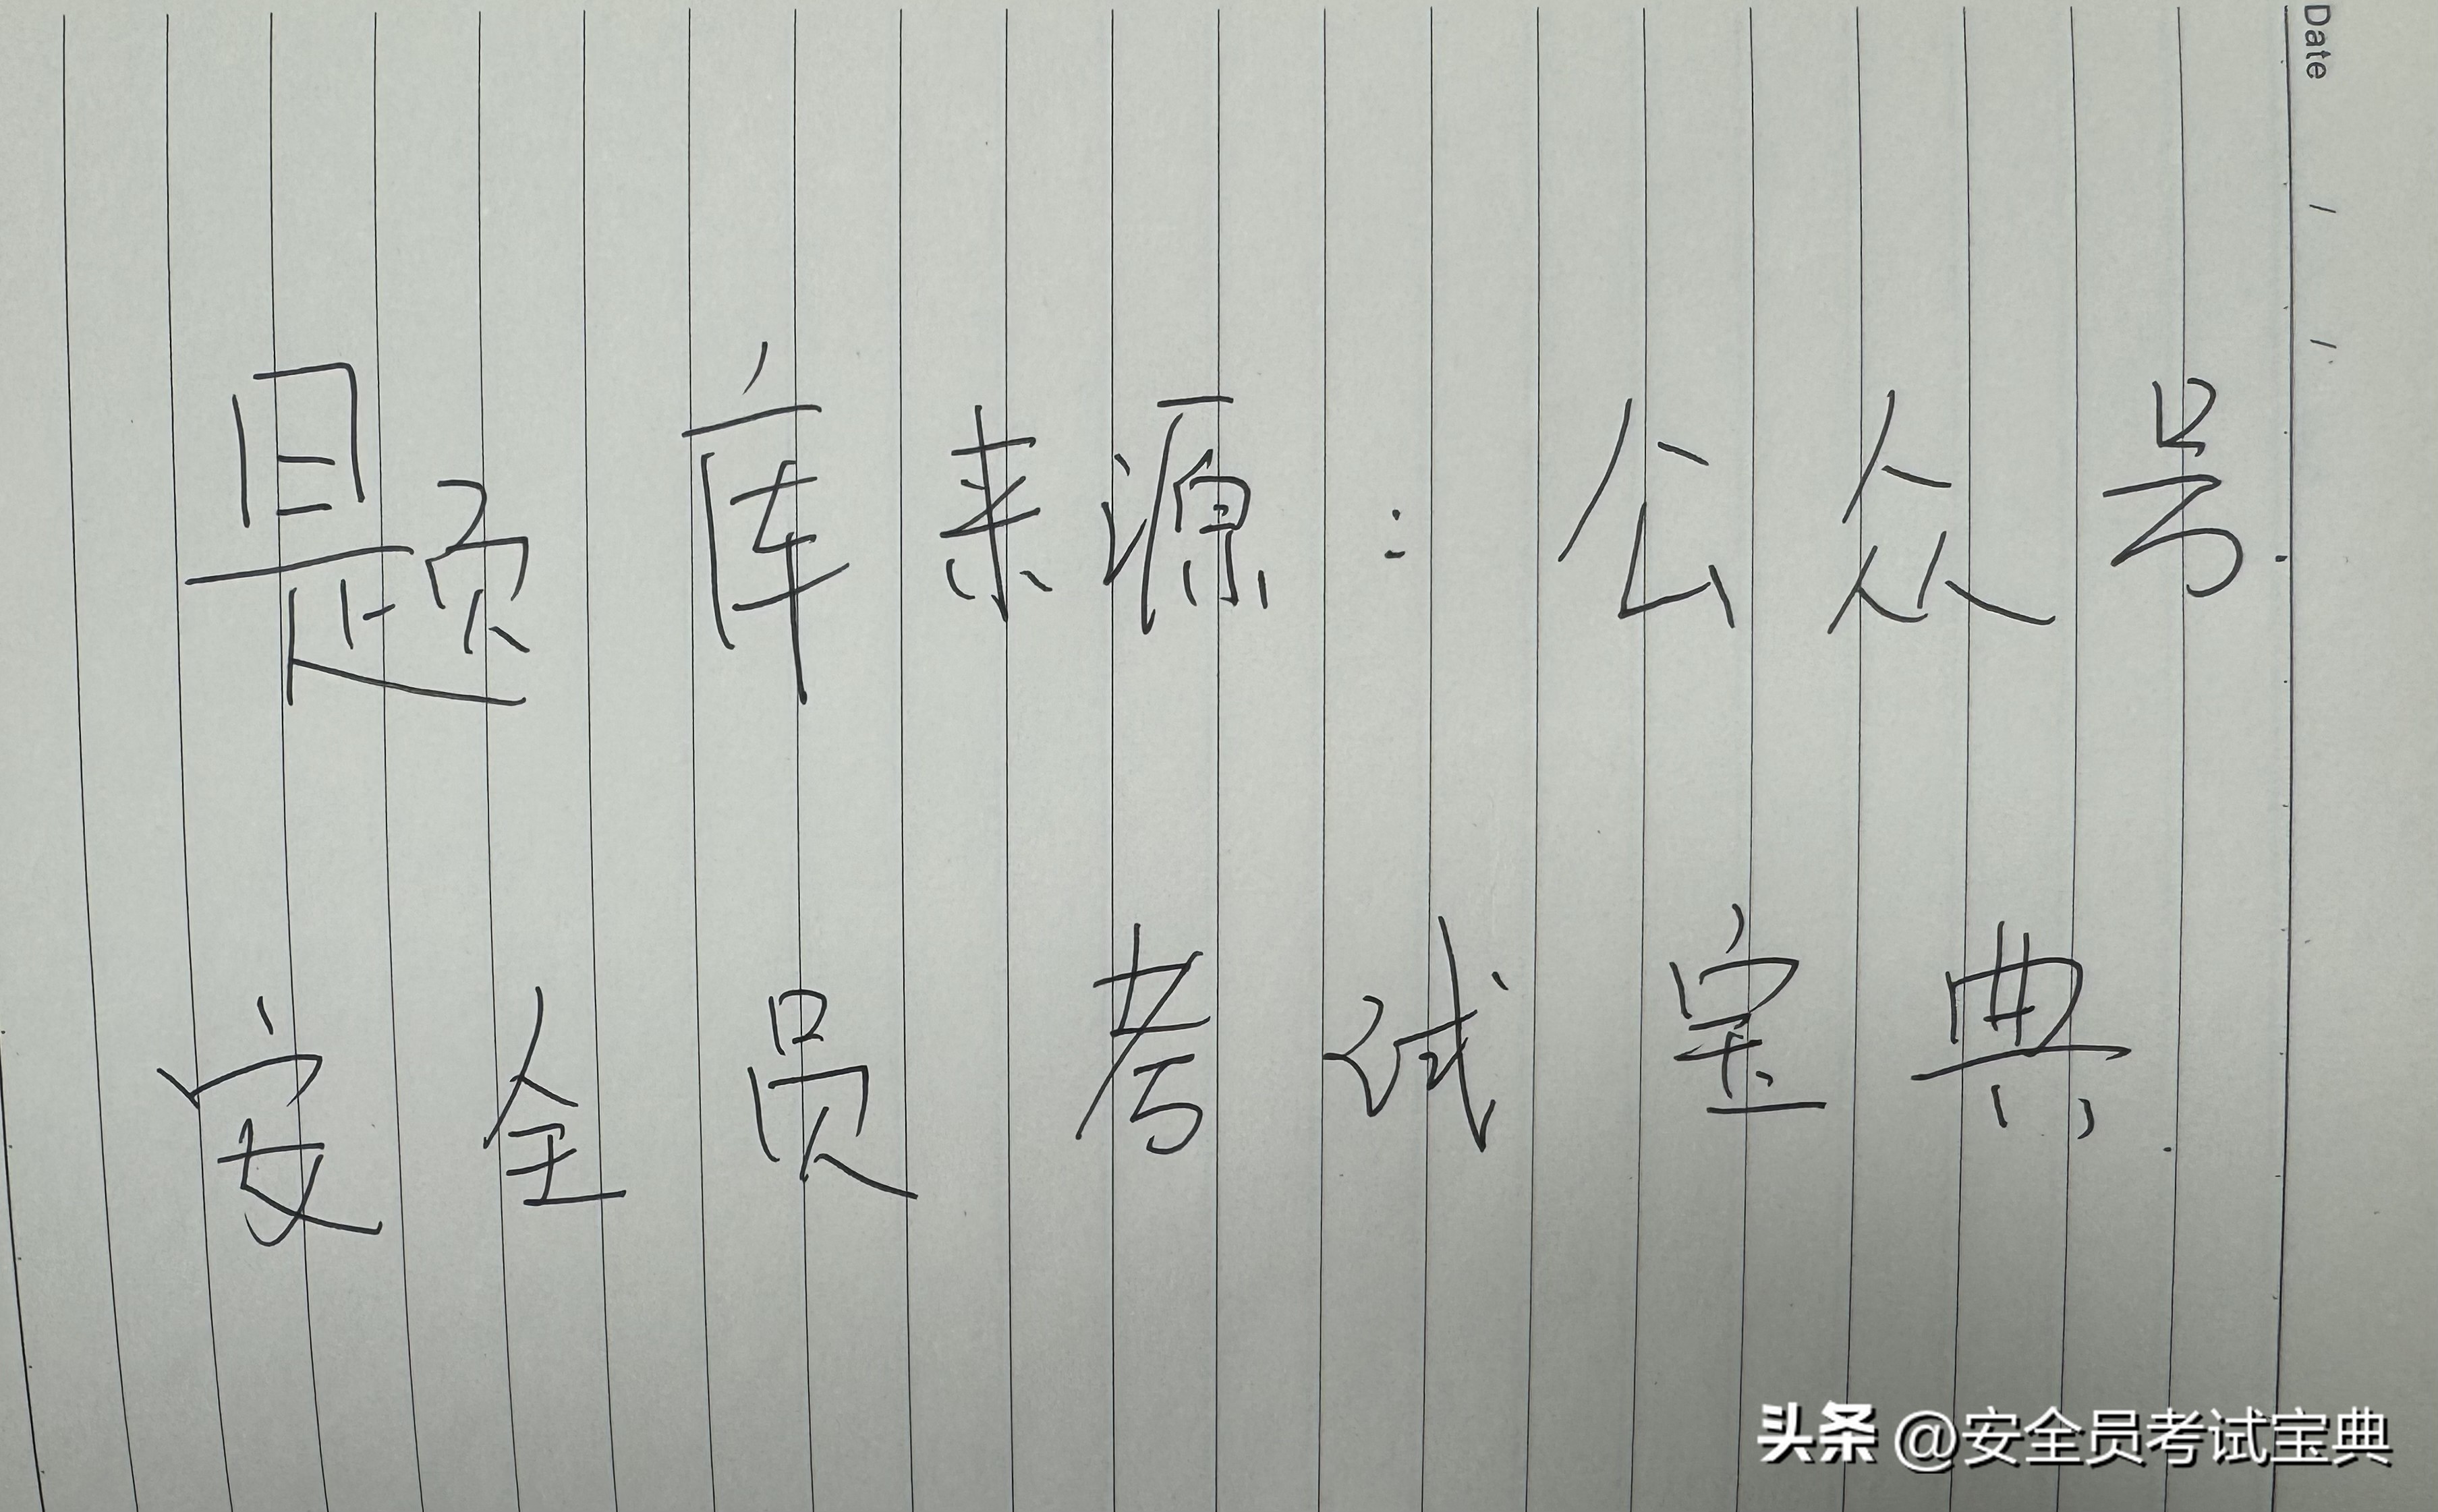 Date / /
题库来源：公众号.
安全员考试宝典.
头条 @安全员考试宝典